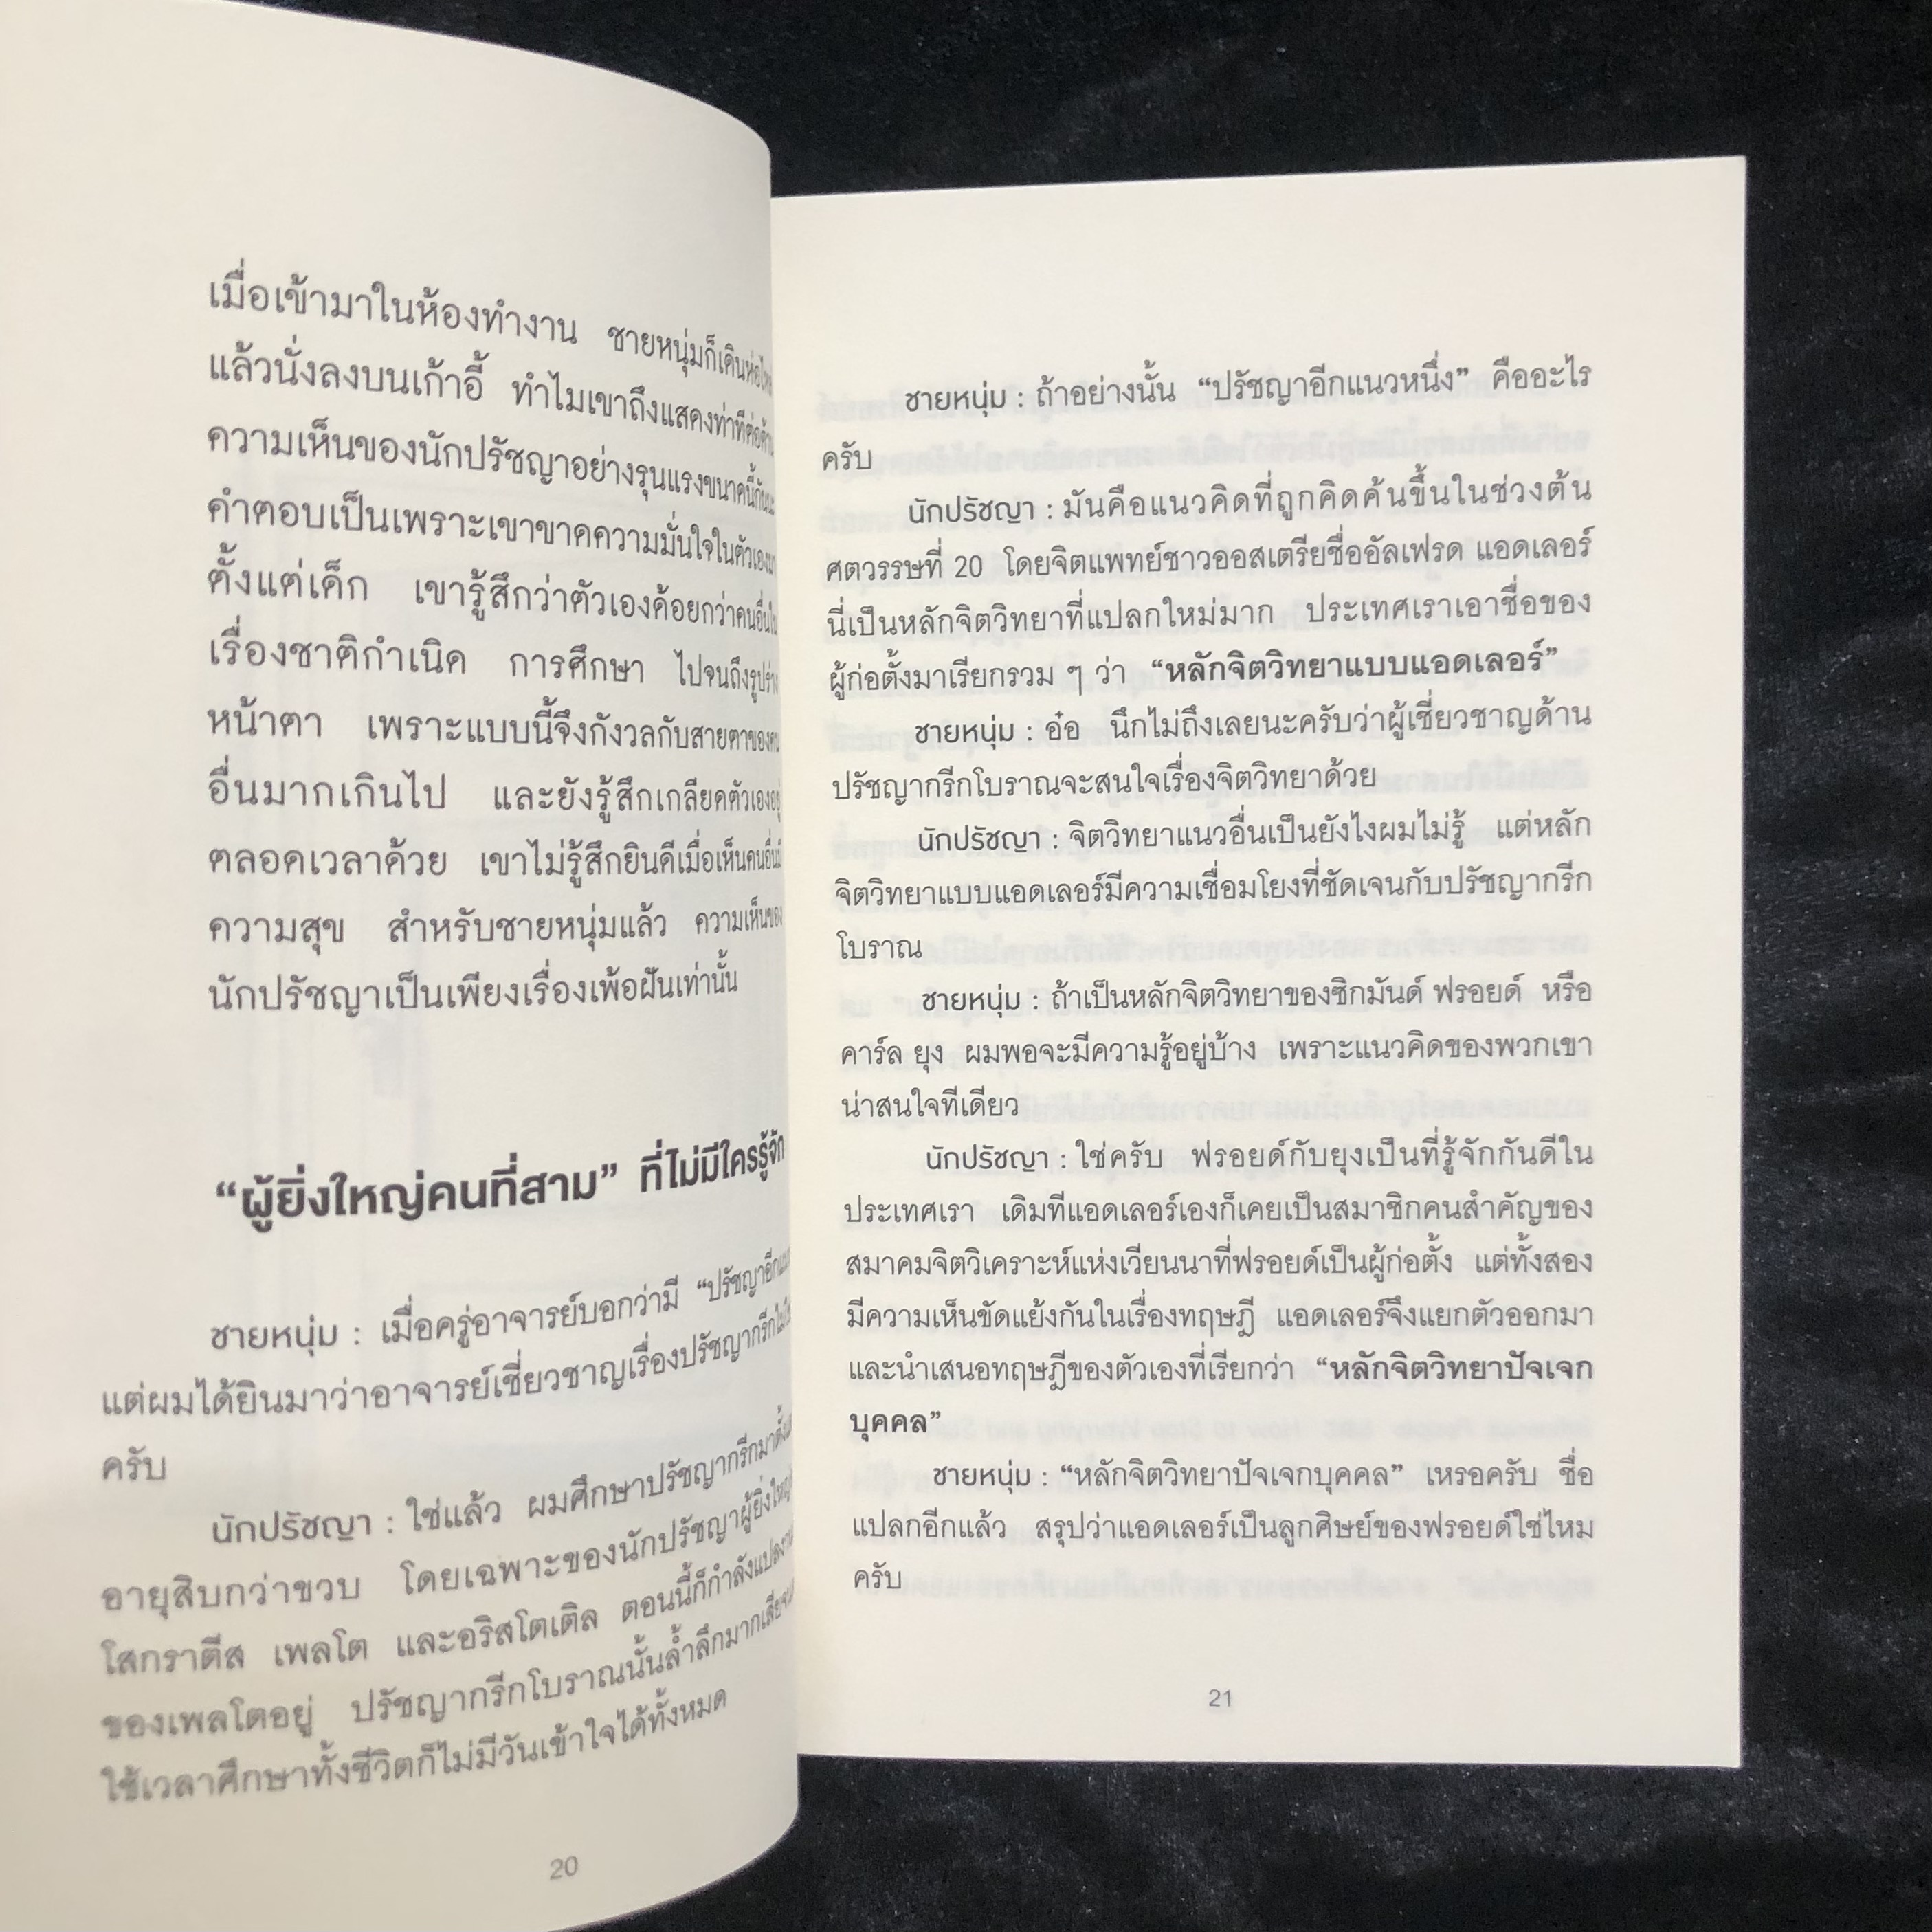 เมื่อเข้ามาในห้องทำงาน ชายหนุ่มก็เดินห่อไหล่
แล้วนั่งลงบนเก้าอี้ ทำไมเขาถึงแสดงท่าทีต่อต้าน
ความเห็นของนักปรัชญาอย่างรุนแรงขนาดนี้กันนะ
คำตอบเป็นเพราะเขาขาดความมั่นใจในตัวเองมา
ตั้งแต่เด็ก เขารู้สึกว่าตัวเองด้อยกว่าคนอื่นใน
เรื่องชาติกำเนิด การศึกษา ไปจนถึงรูปร่าง
หน้าตา เพราะแบบนี้จึงกังวลกับสายตาของคน
อื่นมากเกินไป และยังรู้สึกเกลียดตัวเองอยู่
ตลอดเวลาด้วย เขาไม่รู้สึกยินดีเมื่อเห็นคนอื่นมี
ความสุข สำหรับชายหนุ่มแล้ว ความเห็นของ
นักปรัชญาเป็นเพียงเรื่องเพ้อฝันเท่านั้น
“ผู้ยิ่งใหญ่คนที่สาม” ที่ไม่มีใครรู้จัก
ชายหนุ่ม : เมื่อครู่อาจารย์บอกว่ามี “ปรัชญาอีก
แต่ผมได้ยินมาว่าอาจารย์เชี่ยวชาญเรื่องปรัชญากรีก
ครับ
นักปรัชญา : ใช่แล้ว ผมศึกษาปรัชญากรีกมาตั้งแต่
อายุสิบกว่าขวบ โดยเฉพาะของนักปรัชญาผู้ยิ่งใหญ่
โสกราตีส เพลโต และอริสโตเติล ตอนนี้ก็กำลังแปลงาน
ของเพลโตอยู่ ปรัชญากรีกโบราณนั้นล้ำลึกมากเสียจน
ใช้เวลาศึกษาทั้งชีวิตก็ไม่มีวันเข้าใจได้ทั้งหมด
20
ชายหนุ่ม : ถ้าอย่างนั้น “ปรัชญาอีกแนวหนึ่ง” คืออะไร
ครับ
นักปรัชญา : มันคือแนวคิดที่ถูกคิดค้นขึ้นในช่วงต้น
ศตวรรษที่ 20 โดยจิตแพทย์ชาวออสเตรียชื่ออัลเฟรด แอดเลอร์
นี่เป็นหลักจิตวิทยาที่แปลกใหม่มาก ประเทศเราเอาชื่อของ
ผู้ก่อตั้งมาเรียกรวม ๆ ว่า “หลักจิตวิทยาแบบแอดเลอร์”
ชายหนุ่ม : อ๋อ นึกไม่ถึงเลยนะครับว่าผู้เชี่ยวชาญด้าน
ปรัชญากรีกโบราณจะสนใจเรื่องจิตวิทยาด้วย
นักปรัชญา : จิตวิทยาแนวอื่นเป็นยังไงผมไม่รู้ แต่หลัก
จิตวิทยาแบบแอดเลอร์มีความเชื่อมโยงที่ชัดเจนกับปรัชญากรีก
โบราณ
ชายหนุ่ม : ถ้าเป็นหลักจิตวิทยาของซิกมันด์ ฟรอยด์ หรือ
คาร์ล ยุง ผมพอจะมีความรู้อยู่บ้าง เพราะแนวคิดของพวกเขา
น่าสนใจทีเดียว
นักปรัชญา : ใช่ครับ ฟรอยด์กับยุงเป็นที่รู้จักกันดีใน
ประเทศเรา เดิมทีแอดเลอร์เองก็เคยเป็นสมาชิกคนสำคัญของ
สมาคมจิตวิเคราะห์แห่งเวียนนาที่ฟรอยด์เป็นผู้ก่อตั้ง แต่ทั้งสอง
มีความเห็นขัดแย้งกันในเรื่องทฤษฎี แอดเลอร์จึงแยกตัวออกมา
และนำเสนอทฤษฎีของตัวเองที่เรียกว่า “หลักจิตวิทยาปัจเจก
บุคคล”
ชายหนุ่ม : “หลักจิตวิทยาปัจเจกบุคคล” เหรอครับ ชื่อ
แปลกอีกแล้ว สรุปว่าแอดเลอร์เป็นลูกศิษย์ของฟรอยด์ใช่ไหม
ครับ
21